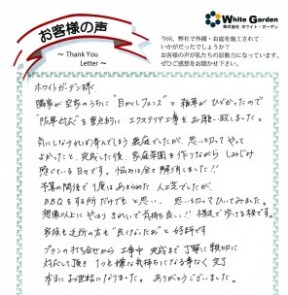 お客様の声
～ Thank You
Letter ～
White Garden
株式会社 ホワイト・ガーデン
今回、弊社で外構・お庭を施工されて
いかがだったでしょうか？
お客様の声が私たちの原動力になっています。
ぜひご感想をお聞かせ下さい。
ホワイトガーデン様
隣家が空家のうちに"目かくしフェンス"と 雑草がひどかったので
"防草対策"を重点的に エクステリア工事をお願い致しました。
気にしなければ済んでしまう裏庭でしたが、思い切ってやって
よかったと、完成した後、家庭菜園を作りながら しみじみ
感じている日々です。悩みは全て解消しました!!
予算の関係で1度はあきらめた 人工芝でしたが、
BBQをする所だけでも と思い、思い切ってひいてみました。
想像以上に やわらかくて気持ち良い!! 裸足で歩ける程です。
家族も近所の方も"良くなったね"と 好評です
プランの打ち合せから 工事中 完成まで 丁寧に 親切に
対応して頂き 1つも嫌な気持ちになる事なく 完了
本当にお世話になりました。ありがとうございました。